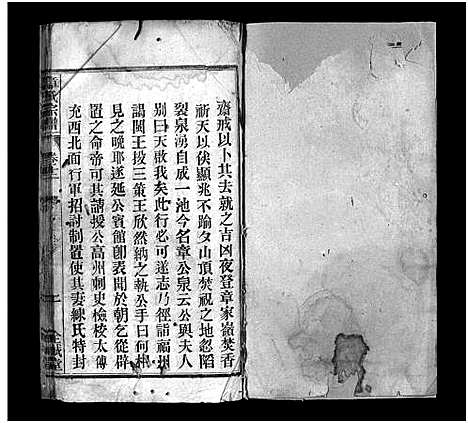 齋戒以卜其去就之吉凶夜登章家嶺焚香
祈天以俟顯兆不踰夕山頂焚視之地忽陷
裂泉湧自成一池今名章公泉云公與夫人
別曰天啟我矣此行必可遂志乃徑詣福州
謁閩王投三策王欣然納之執公手曰何相
見之晚耶遂延公賓館卽表聞於朝乞從辟
置之命帝可其請授公高州刺史檢校太傅
充西北面行軍招討制置使其妻練氏特封
章氏宗譜